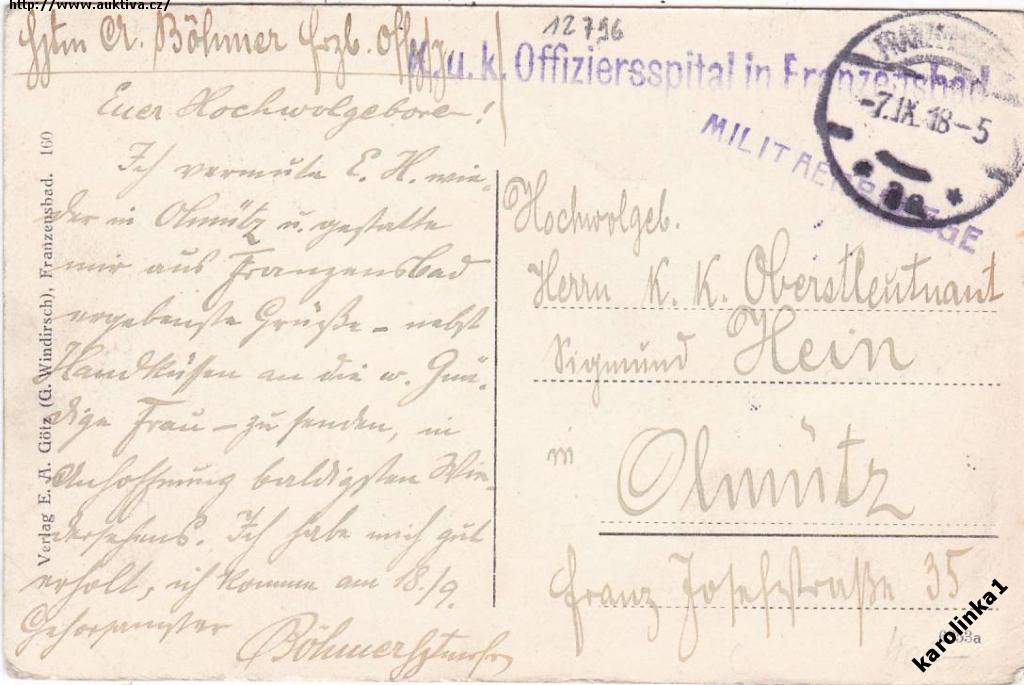 http://www.auktiva.cz/
A. Böhmer
12796
K. u. k. Offiziersspital in Franzensbad
-7.IX.18-5
* *
MILITAERPFLEGE
Euer Hochwolgeboren!
Ich vermute E. H. wie-
der in Olmütz u. gestatte
mir aus Franzensbad
ergebenste Grüße – nebst
Handküssen an die w. Gnä-
dige Frau – zu senden, in
Anhoffnung baldigsten Wie-
dersehens. Ich habe mich gut
erholt, ich komme am 18/9.
Gehorsamster
Böhmer
Verlag E. A. Götz (G. Windirsch), Franzensbad. 160
Hochwolgeb.
Herrn K. K. Oberstleutnant
Sigmund Hein
in Olmütz
Franz Josefstraße 35
karolinka1